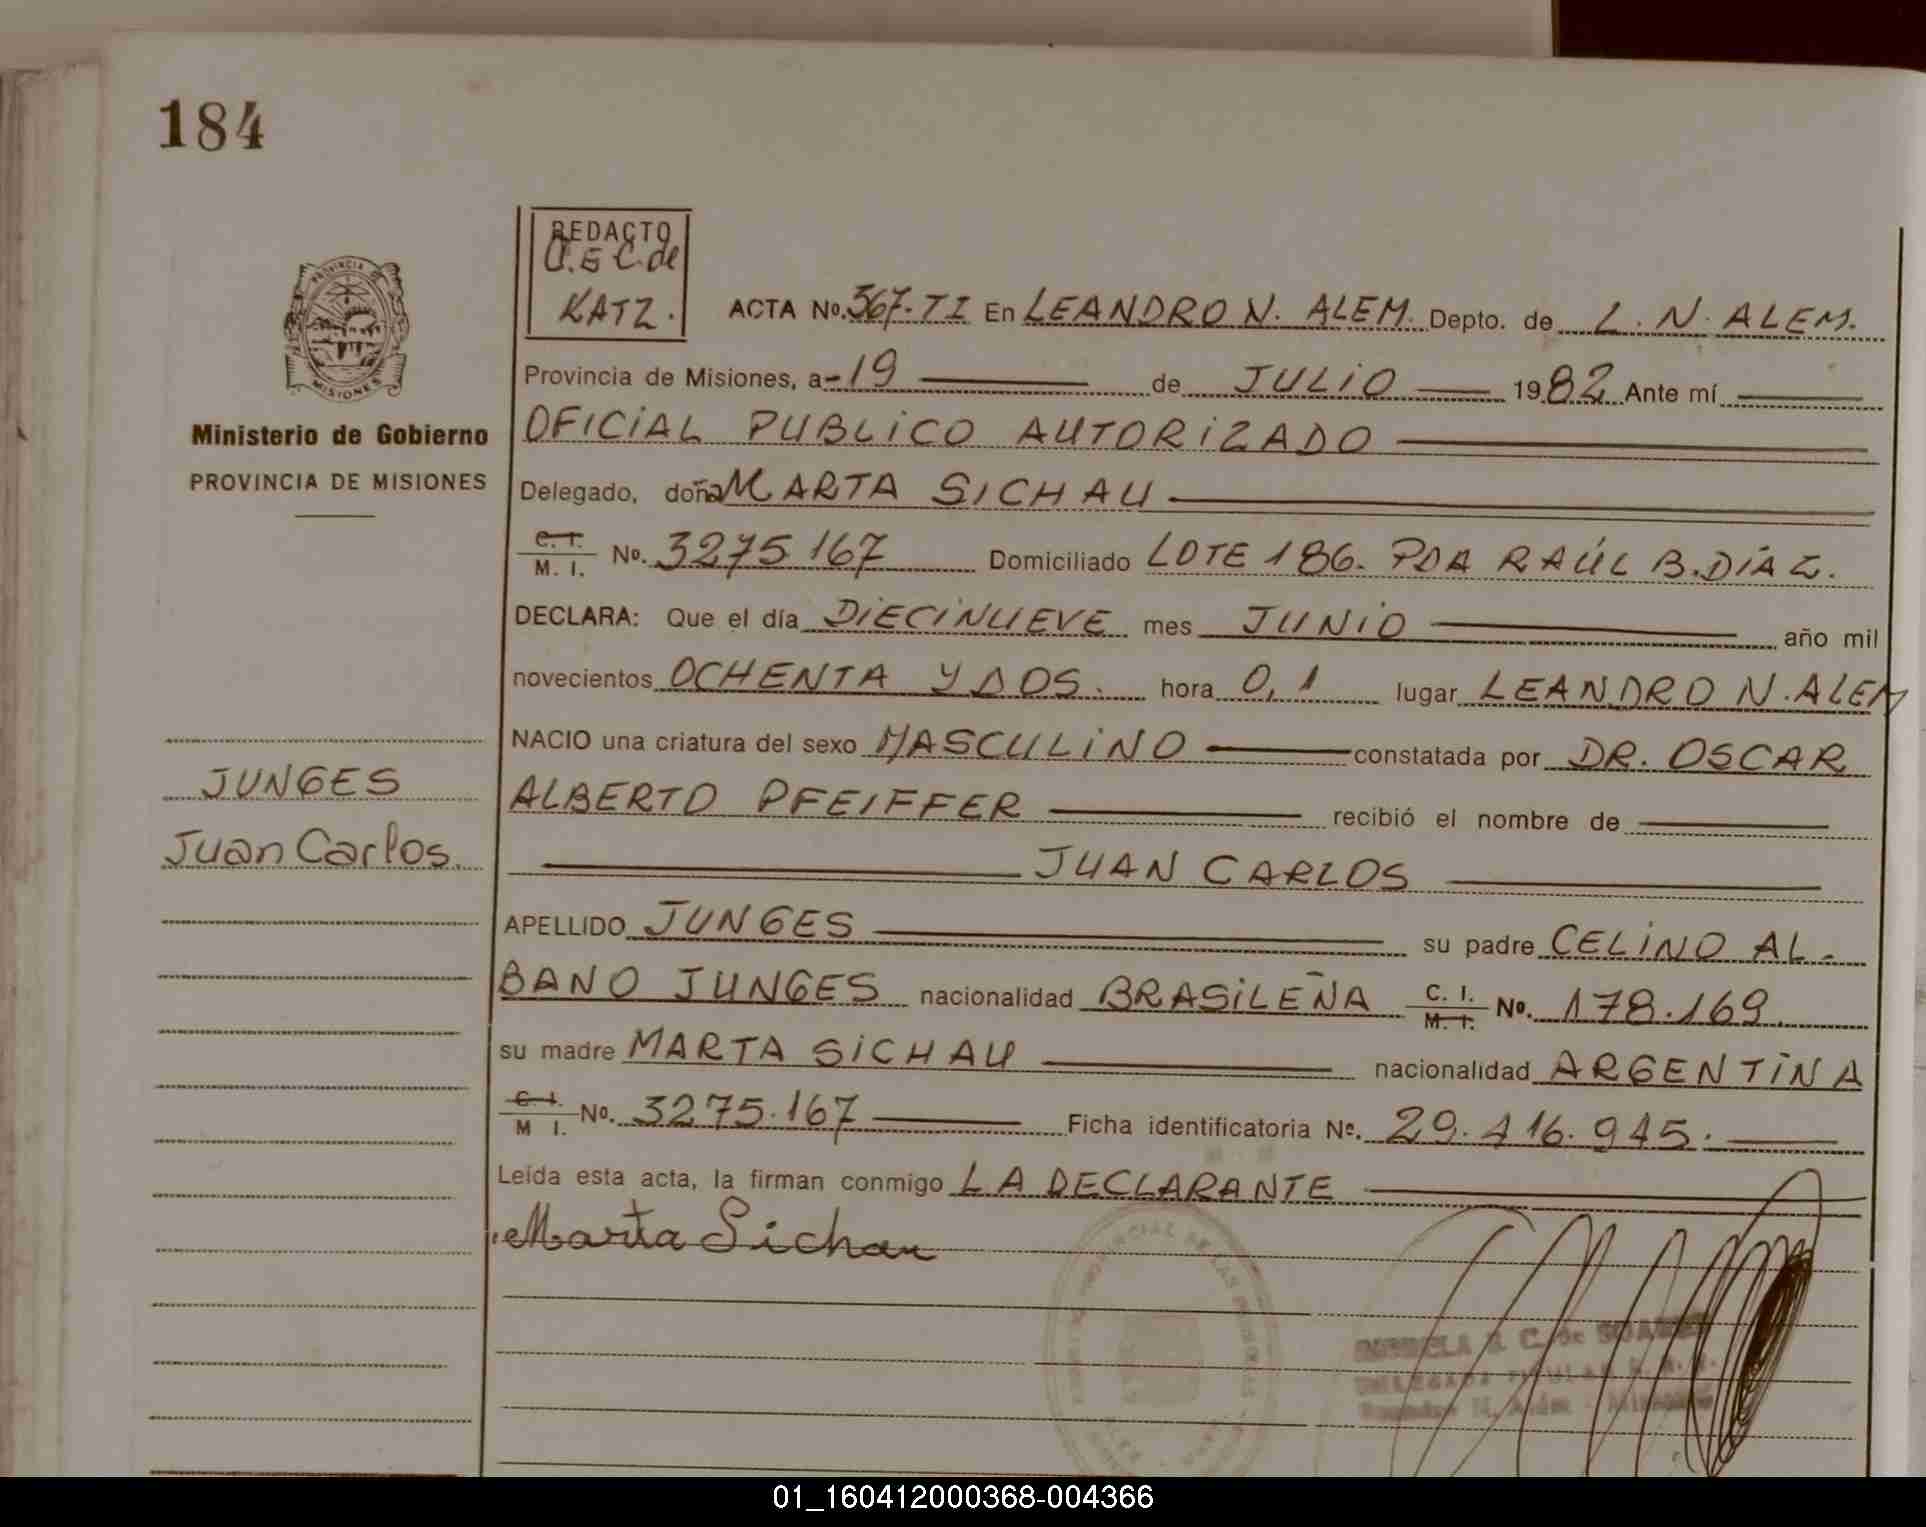 184
REDACTO
O.E C. de
KATZ.
ACTA No. 367-TI En LEANDRO N. ALEM. Depto. de L. N. ALEM.
Provincia de Misiones, a 19 de JULIO 1982 Ante mí
Ministerio de Gobierno
PROVINCIA DE MISIONES
OFICIAL PUBLICO AUTORIZADO
Delegado, doña MARTA SICHAU
C. I. M. I. No. 3275167 Domiciliado LOTE 186. PDA RAÚL B. DÍAZ.
DECLARA: Que el día DIECINUEVE mes JUNIO año mil
novecientos OCHENTA Y DOS. hora 0,1 lugar LEANDRO N. ALEM
NACIO una criatura del sexo MASCULINO constatada por DR. OSCAR
JUNGES
Juan Carlos.
ALBERTO PFEIFFER recibió el nombre de
JUAN CARLOS
APELLIDO JUNGES su padre CELINO AL-
BANO JUNGES nacionalidad BRASILEÑA C. I. M. I. No. 178.169.
su madre MARTA SICHAU nacionalidad ARGENTINA
C. I. M I. No. 3275.167 Ficha identificatoria No. 29.416.945.
Leída esta acta, la firman conmigo LA DECLARANTE
Marta Sichau
C. de SOAREZ
01_160412000368-004366